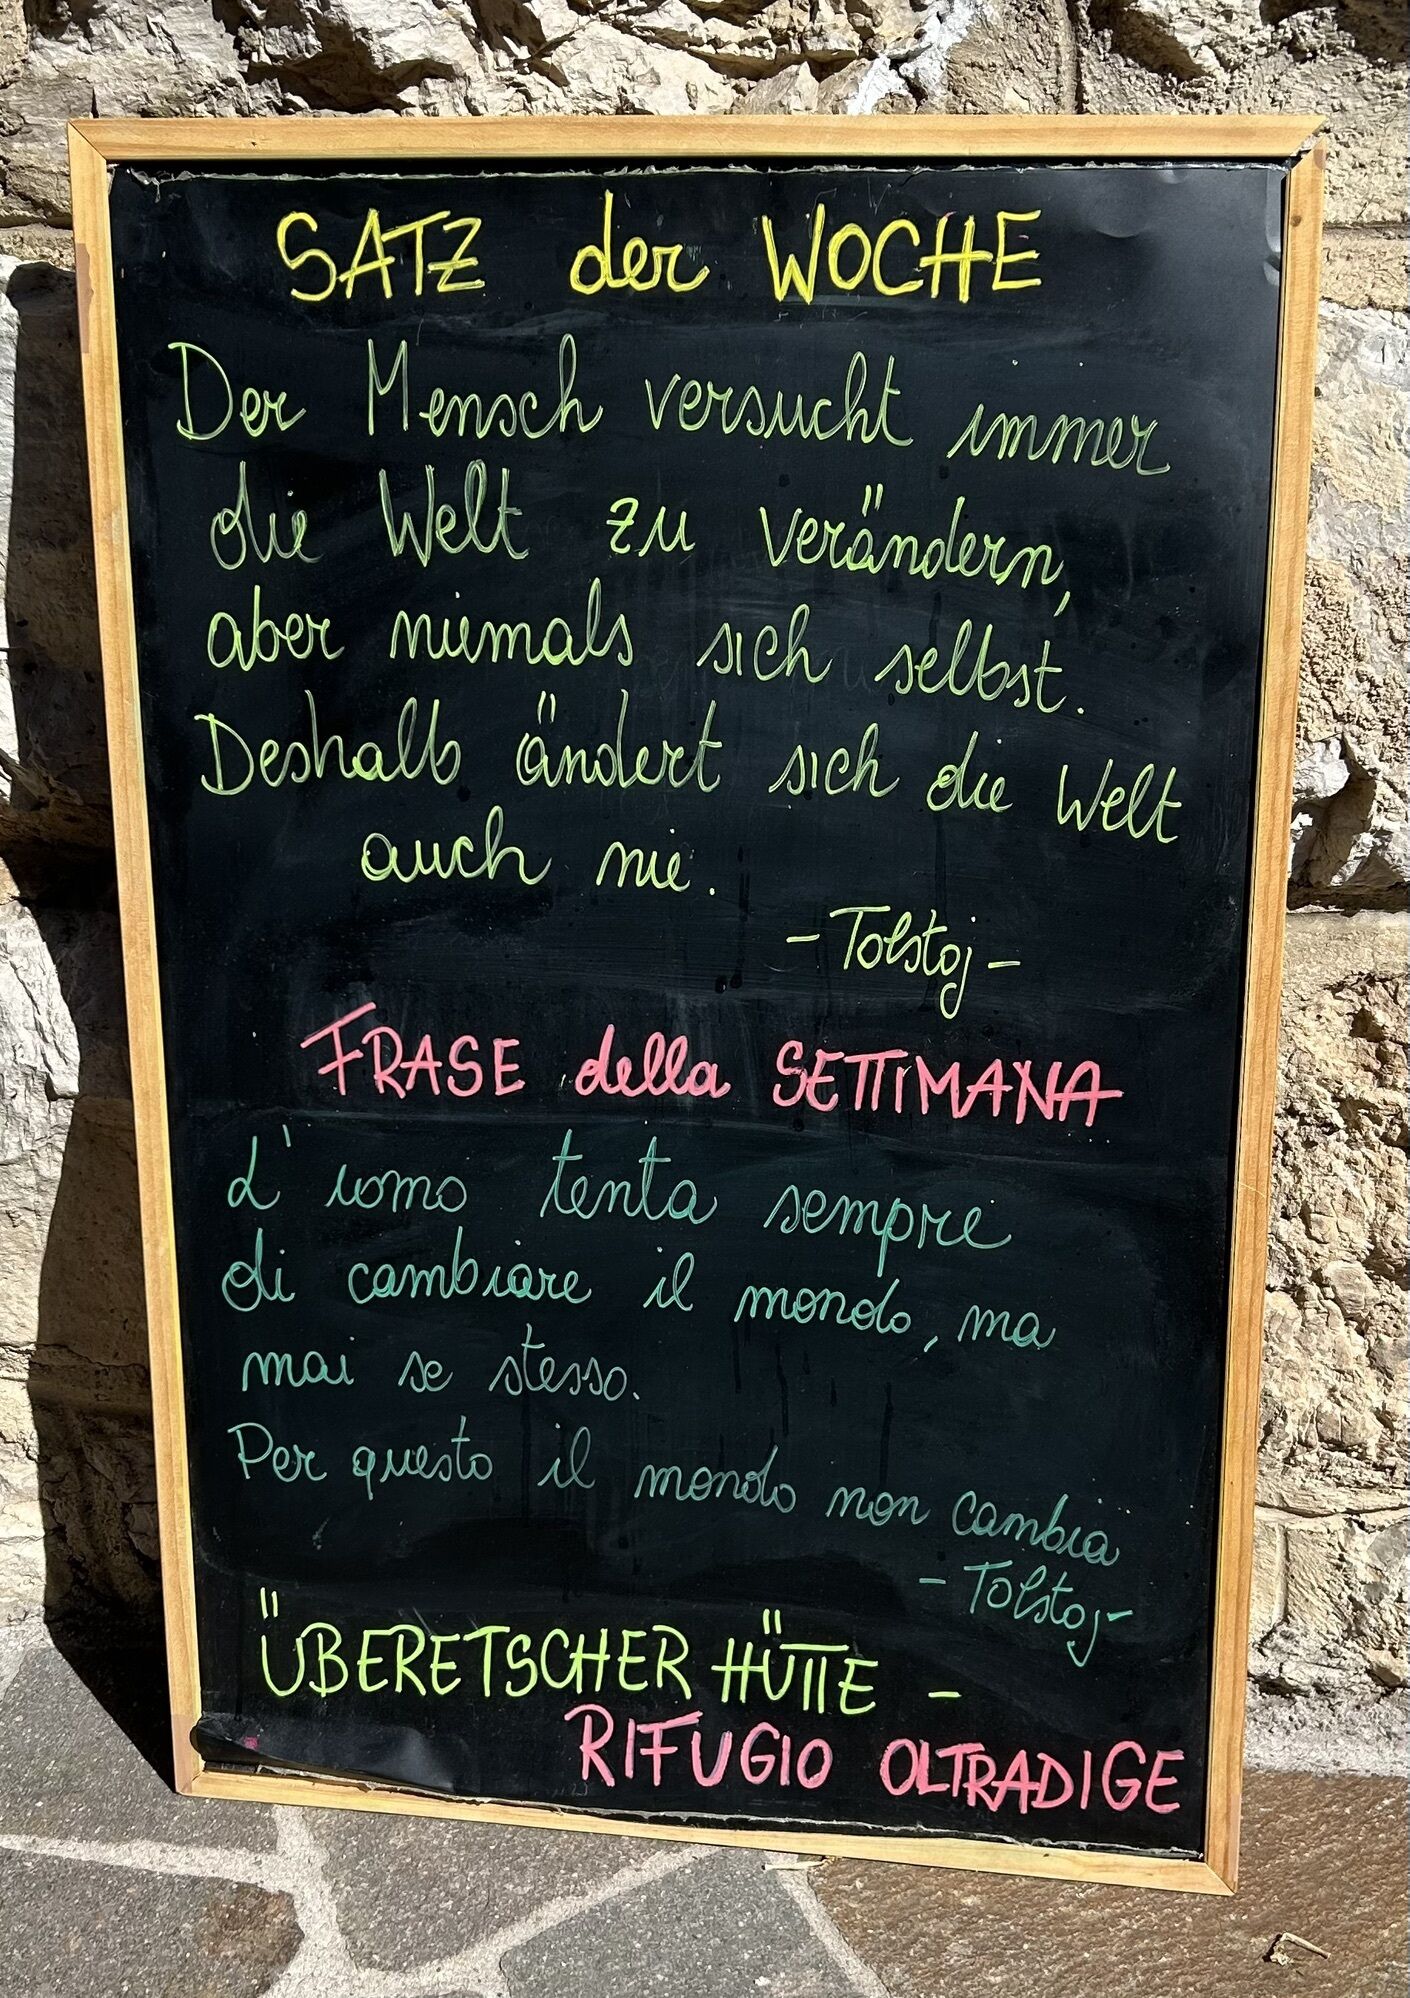 SATZ der WOCHE
Der Mensch versucht immer
die Welt zu verändern,
aber niemals sich selbst.
Deshalb ändert sich die Welt
auch nie.
- Tolstoj -
FRASE della SETTIMANA
L'uomo tenta sempre
di cambiare il mondo, ma
mai se stesso.
Per questo il mondo non cambia
- Tolstoj -
ÜBERETSCHER HÜTTE -
RIFUGIO OLTRADIGE